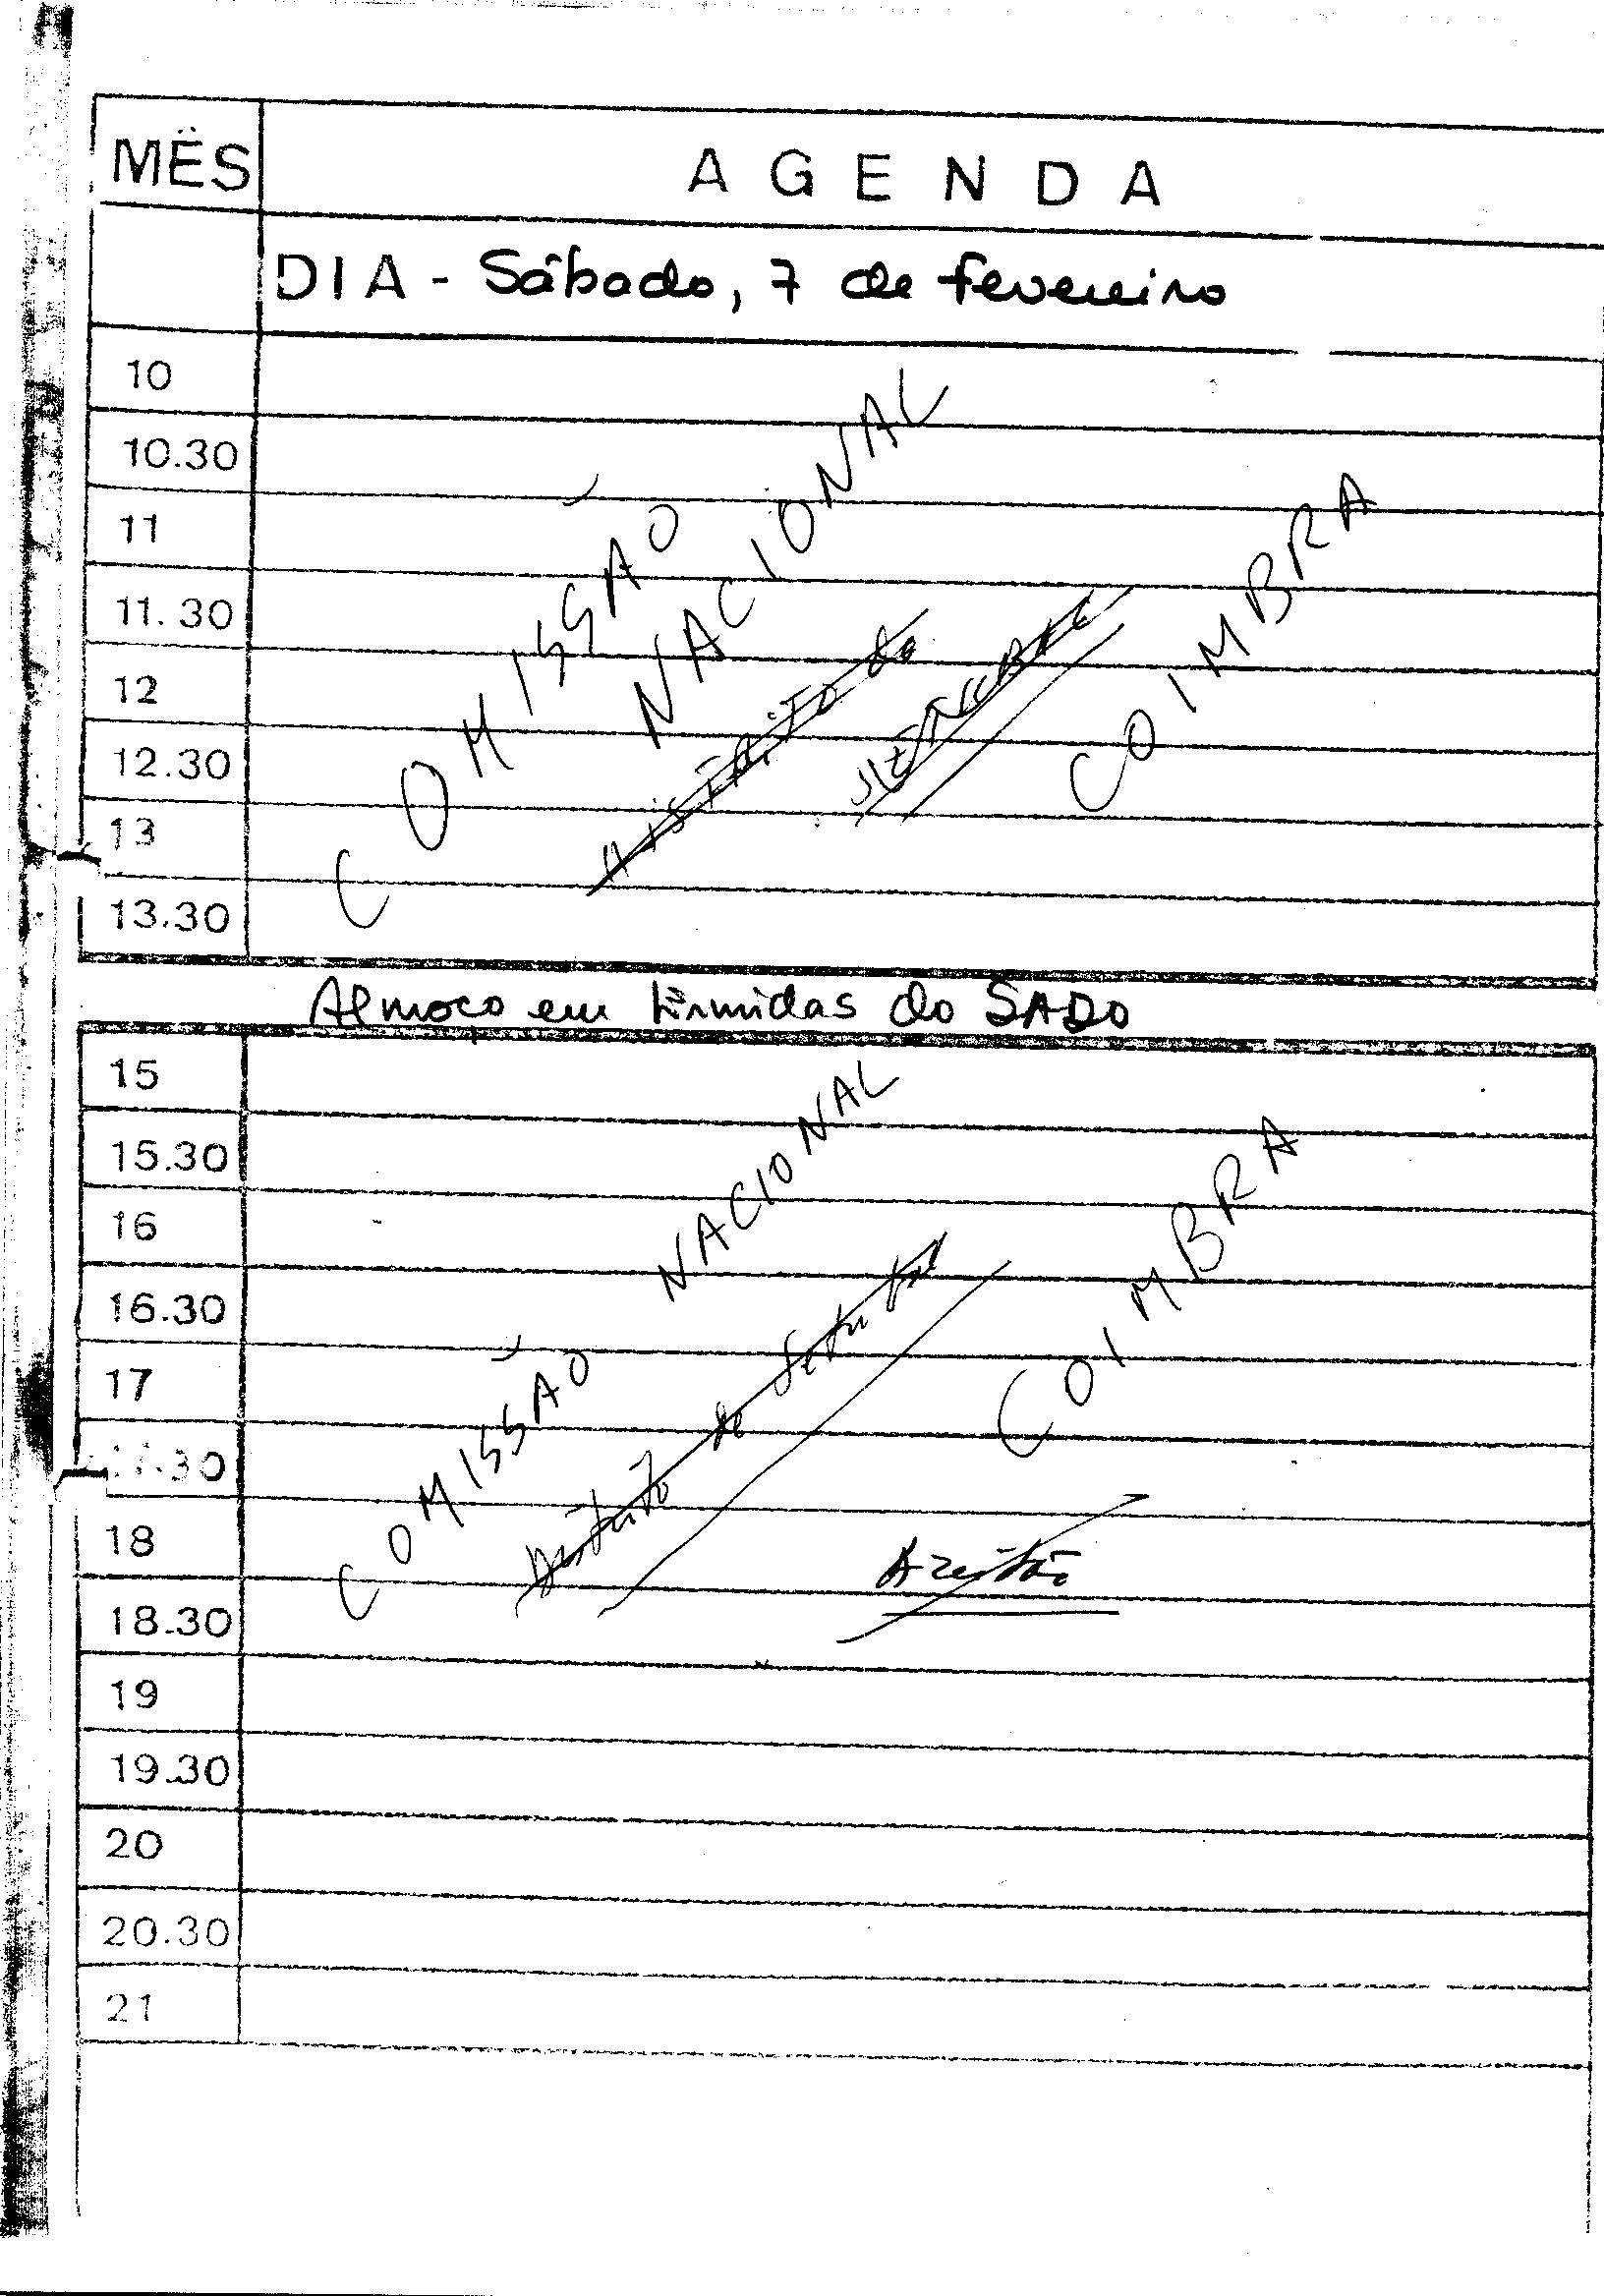 MÊS AGENDA
DIA - Sábado, 7 de fevereiro
10
10.30
11
11.30
12
12.30
13
13.30
COMISSÃO
NACIONAL
DISTRITO de
SETÚBAL
COIMBRA
Almoço em Ermidas do SADO
15
15.30
16
16.30
17
17.30
18
18.30
19
19.30
20
20.30
21
COMISSÃO NACIONAL
Distrito de Setúbal
COIMBRA
Azeitão